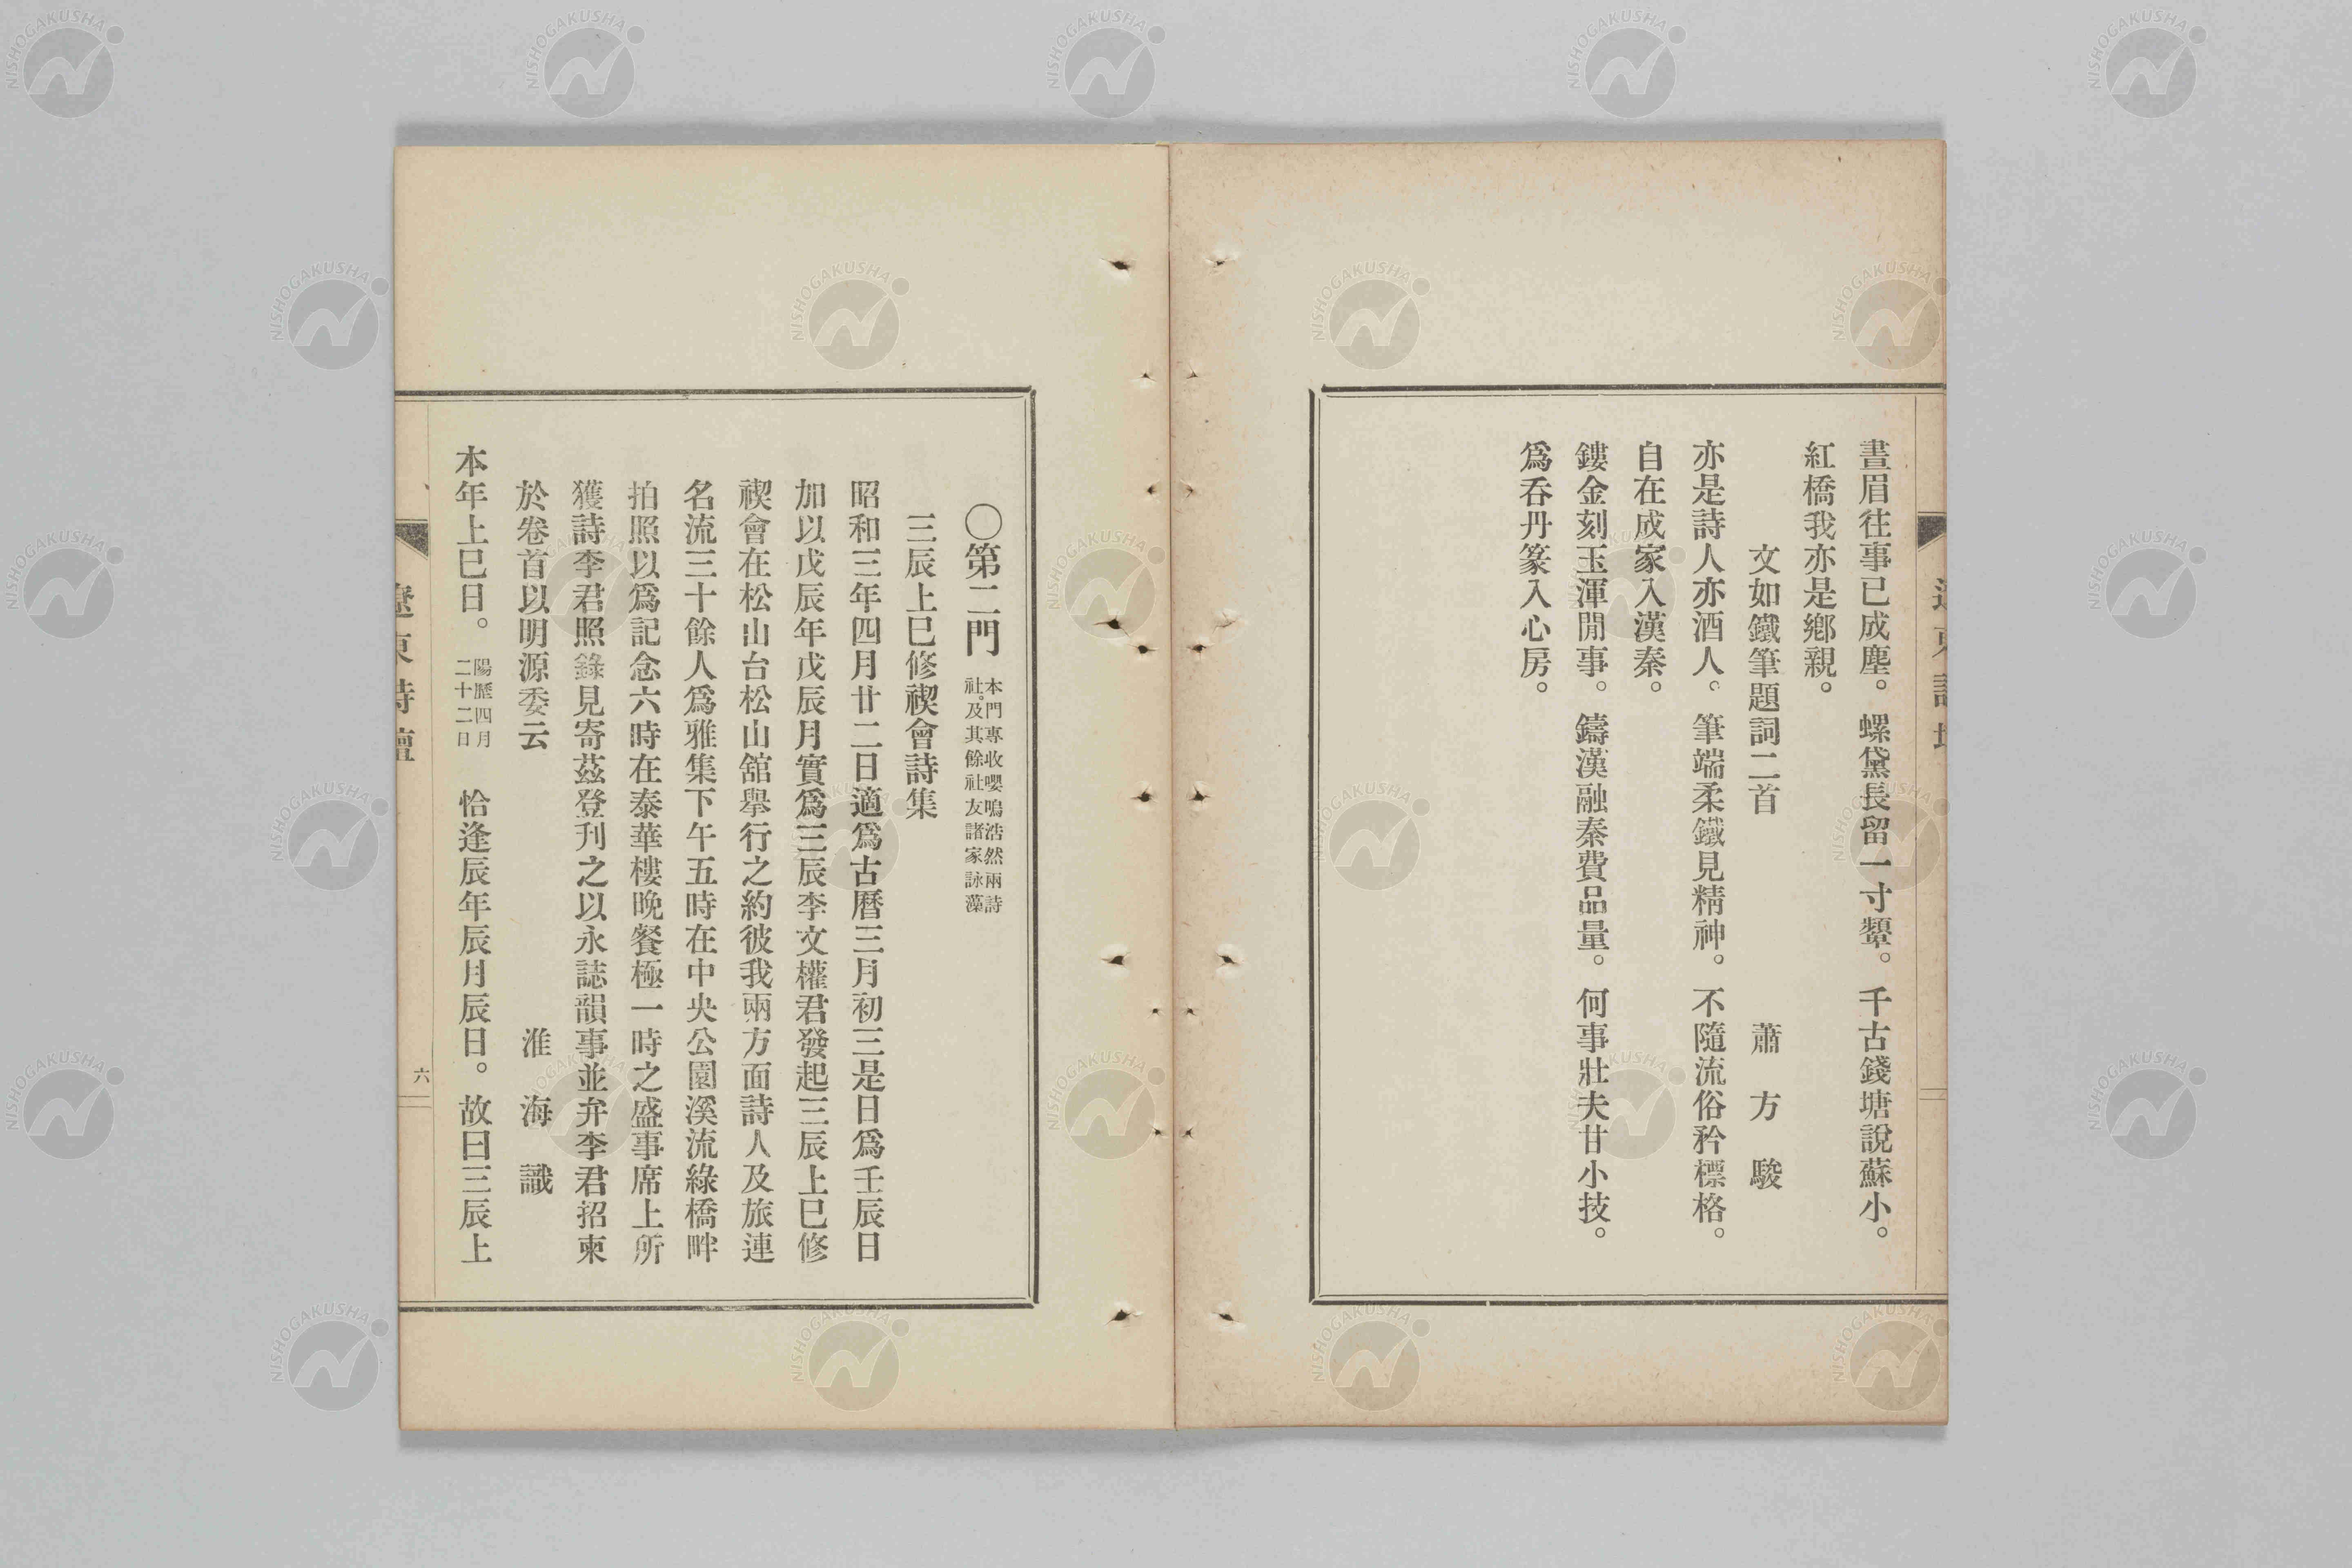 晝眉往事已成塵。螺黛長留一寸顰。千古錢塘說蘇小。
紅橋我亦是鄉親。
文如鐵筆題詞二首　蕭方駿
亦是詩人亦酒人。筆端柔鐵見精神。不隨流俗矜標格。
自在成家入漢秦。
鏤金刻玉渾閒事。鑄漢融秦費品量。何事壯夫甘小技。
爲吞丹篆入心房。
〇第二門
本門專收嚶鳴浩然兩詩
社。及其餘社友諸家詠藻
三辰上巳修禊會詩集
昭和三年四月廿二日適爲古曆三月初三是日爲壬辰日
加以戊辰年戊辰月實爲三辰李文權君發起三辰上巳修
禊會在松山台松山舘舉行之約彼我兩方面詩人及旅連
名流三十餘人爲雅集下午五時在中央公園溪流綠橋畔
拍照以爲記念六時在泰華樓晚餐極一時之盛事席上所
獲詩李君照錄見寄茲登刋之以永誌韻事並弁李君招柬
於卷首以明源委云　淮海識
本年上巳日。
陽歷四月
二十二日
恰逢辰年辰月辰日。故曰三辰上
遼東詩壇
六
NISHOGAKUSHA